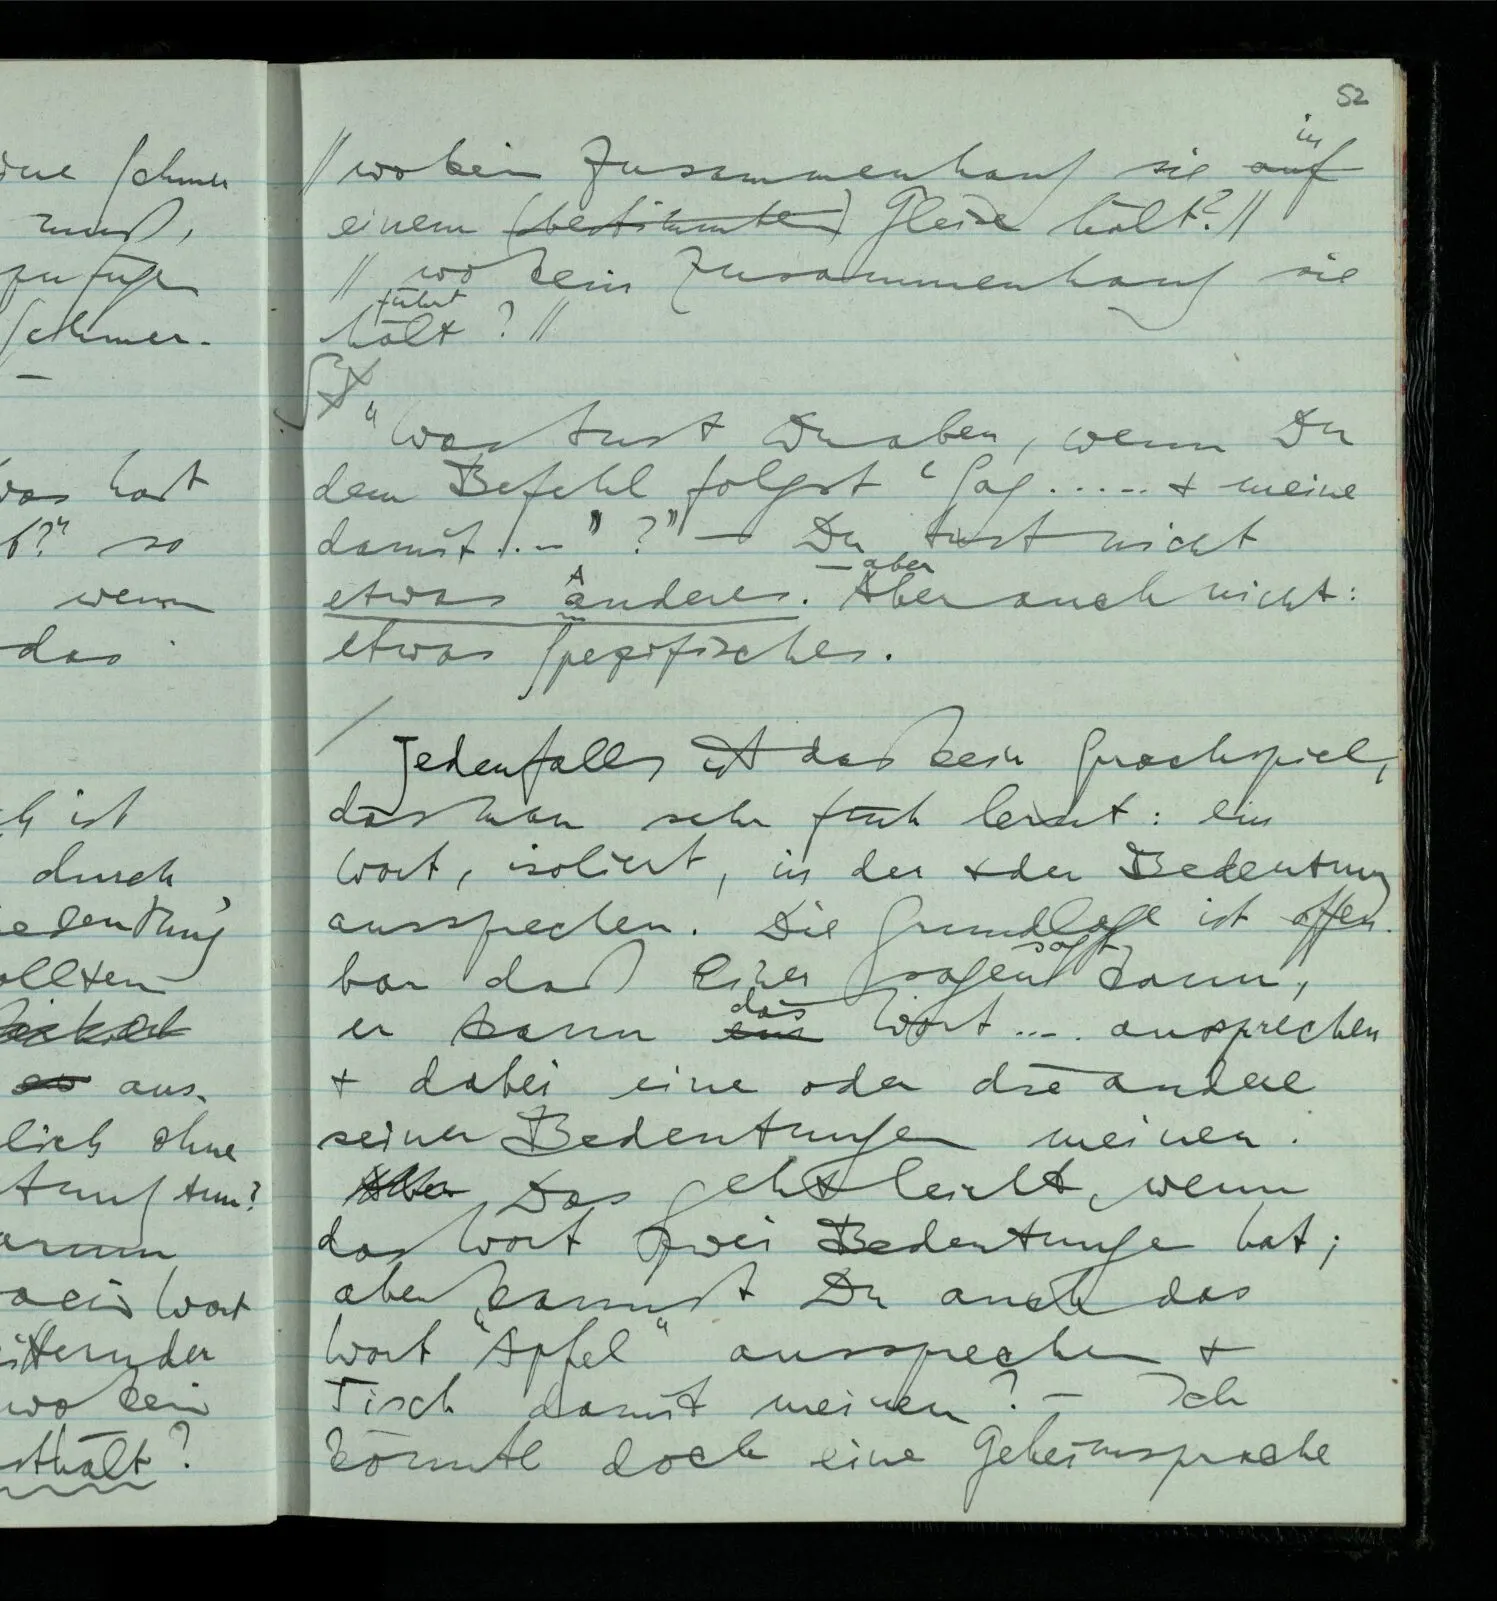 ine schmer
muß,
zufügen
schmer-
was hast
b?" so
wenn
das
ch ist
durch
Bedeutung'
sollten
aus-
lich ohne
tung tun?
warum
ein Wort
zitternder
wo kein
sthält?
52
in
// wo kein Zusammenhang sie auf
einem (bestimmten) Gleise hält? //
// wo kein Zusammenhang sie
führt
hält? //
"Was tust Du aber, wenn Du
dem Befehl folgst 'Sag ..... + meine
damit ...' ?" – Du tust nicht
A aber
etwas anderes. Aber auch nicht:
etwas spezifisches.
/ Jedenfalls ist das kein Sprachspiel,
das man sehr früh lernt: ein
Wort, isoliert, in der + der Bedeutung
aussprechen. Die Grundlage ist offen-
sagt
bar daß Einer sagen kann,
das
er kann ein Wort .... aussprechen
+ dabei eine oder die andere
seiner Bedeutungen meinen.
Aber Das geht leicht, wenn
das Wort zwei Bedeutungen hat;
aber kannst Du auch das
Wort "Apfel" aussprechen +
Tisch damit meinen? – Ich
könnte doch eine Geheimsprache